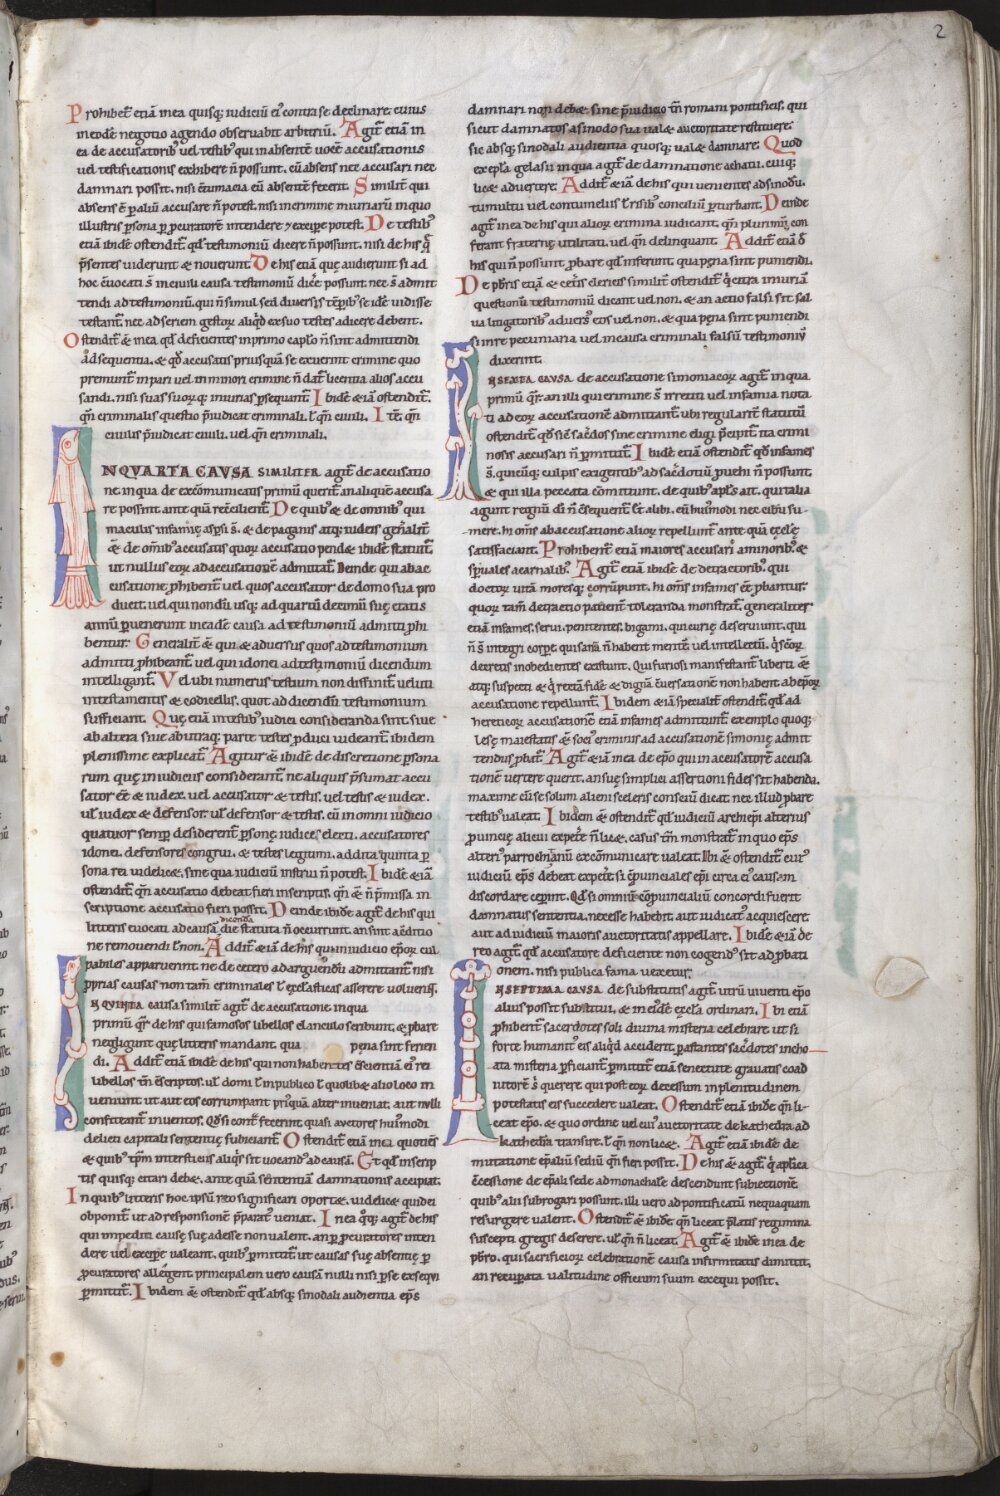 2
Prohibet̃ etiã in ea quisq; iudiciũ ei' contra se declinare. cuius
in eodẽ negotio agendo obseruabit arbitriũ. Agit̃ etiã in
ea de accusatorib; uel testib; qui in absentẽ uocẽ accusationis
uel testificationis exhibere ñ possunt. cũ absens nec accusari nec
damnari possit. nisi ↄtumacia eũ absentẽ fecerit. Similit̃ qui
absens ẽ p aliũ accusare ñ potest. nisi in crimine iniuriarũ in quo
illustris psona p pcuratorẽ intendere ⁊ excipe potest. De testib;
etiã ibidẽ ostendit̃. qđ testimoniũ dicere ñ possunt. nisi de his q̃
p̃sentes uiderunt & nouerunt. De his etiã quę audierunt si ad
hoc ↄuocati s̃ in ciuili causa testimoniũ dic̃e possunt. nec s̃ admit
tendi ad testimoniũ. qui ñ simul sed diuersis tẽpib; se idẽ uidisse
testant̃. nec ad seriem gestoꝝ aliq̃d ex suo testes adicere debent.
Ostendit̃ & in ea qđ deficientes in primo cap̃lo ñ sint admittendi
ad sequentia. & qđ accusatus priusquã se exuerint crimine quo
premunt̃ in pari uel in minori crimine ñ dat̃ licentia alios accu
sandi. nisi suas suoꝝq; iniurias psequant̃. Ibidẽ &iã ostendit̃.
qñ criminalis questio p̃iudicat criminali. ł qñ ciuili. Itẽ. qñ
ciuilis p̃iudicat ciuili. uel qñ criminali.
IN QVARTA CAVSA SIMILITER agit̃ de accusatio
ne. in qua de excõmunicatis primũ querit̃. an aliquẽ accusa
re possint ante quã recõcilient̃. De quib; & de omnib; qui
maculis infamię aspsi s̃. & de paganis atq; iudeis gen̄alit̃
& de om̃ib; accusatis quoꝝ accusatio pend& ibidẽ statuit̃
ut nullus eoꝝ ad accusationẽ admitat̃. Deinde qui ab ac
cusatione phibent̃. uel quos accusator de domo sua pro
ducit. uel qui nondũ usq; ad quartũ decimũ suę etatis
annũ puenerunt in eadẽ causa ad testimoniũ admitti phi
bentur. Generalit̃ & qui & aduersus quos ad testimonium
admitti phibeant̃. uel qui idonei ad testimoniũ dicendum
intelligant̃. Vel ubi numerus testium non diffinit̃. ueluti
in testamentis & codicellis. quot ad dicendũ testimonium
sufficiant. Quę etiã in testib; iudici consideranda sint. siue
ab altera siue ab utraq; parte testes pduci uideant̃. ibidem
plenissime explicat̃. Agitur & ibidẽ de discretione psona
rum quę in iudiciis considerant̃. ne aliquis p̃sumat accu
sator eẽ & iudex. uel accusator & testis. uel testis & iudex.
uł iudex & defensor. uł defensor & testis. cũ in omni iudicio
quatuor semp desiderent̃ psonę. iudices electi. accusatores
idonei. defensores congrui. & testes legitimi. addita quinta p
sona rei uidelic&. sine qua iudiciũ instrui ñ potest. Ibidẽ &iã
ostendit̃. qñ accusatio debeat fieri in scriptis. qñ & ñ p̃missa in
scriptione accusatio fieri possit. Deinde ibidẽ agit̃ de his qui
litteris euocati ad causã dicendã die statuta ñ occurrunt. an sint a ↄditio
ne remouendi ł non. Addit̃ &iã de his qui in iudicio ep̃oꝝ cul
pabiles apparuerint. ne de cetero ad arguendũ admittant̃. nisi
pprias causas non tam̃ criminales ł eccl̃asticas asserere uoluerĩt.
IN QVINTA causa similit̃ agit̃ de accusatione. in qua
primũ qr̃ de his qui famosos libellos clanculo scribunt. & pbare
neglegunt quę litteris mandant. qua pęna sint ferien
di. Addit̃ etiã ibidẽ de his qui non habentes ↄscientiã ei' rei
libellos tm̃ ↄscriptos. uł domi ł in publico ł quolib& alio loco in
uenunt. ut aut eos corrumpant priꝰquã alter inueniat. aut nulli
confiteant̃ inuentos. Qđ si contr̃ fecerint quasi auctores huiꝰmodi
delicti capitali sententię subiciant̃. Ostendit̃ etiã in ea quotiẽs
& quib; tp̃m interstitiis aliq̃s sit uocandꝰ ad causã. Et qđ in scrip
tis quisq; citari debeat. ante quã sẽntentiã damnationis accipiat.
In quib; litteris hoc ipsũ reo significari oport&. uidelic& quid ei
obponit̃. ut ad responsionẽ p̃parat' ueniat. In ea q̊q; agit̃ de his
qui impediti causę suę adesse non ualent. an p pcuratores inten
dere uel excipe ualeant. quib; p̃mittit̃ ut causas suę absentię p
pcuratores allegent. principalem uero causã nulli nisi p se exsequi
pmittit̃. Ibidem & ostendit̃ qđ absq; sinodali audientia ep̃s
damnari non debeat. sine p̃iudicio tñ romani pontificis. qui
sicut damnatos a sinodo sua ual& auctoritate restituere.
sic absq; sinodali audientia quosq; ual& damnare. Quod
exẽpla gelasii in qua agit̃ de damnatione achatii. cuiq;
lic& aduertere. Addit̃ &iã de his qui uenientes ad sinodũ.
tumultu uel contumeliis ł risib; concilium pturbant. Deinde
agit̃ in ea de his qui alioꝝ crimina iudicant. qñ plurimũ con
ferant fraternę utilitati. uel qñ delinquant. Addit̃ etiã đ
his qui ñ possunt pbare qđ inferunt. qua pęna sint puniendi.
De pb̃ris etiã & cet̃is clericis similit̃ ostendit̃ q̃ circa iniuriã
questionũ testimoniũ dicant uel non. & an actio falsi sit sal
ua litigatorib; aduersꝰ eos uel non. & qua pęna sint puniendi
si in re pecuniaria uel in causa criminali falsũ testimoniũ
dixerint.
IN SEXTA CAVSA de accusatione simoniacoꝝ agit̃. in qua
primũ qr̃. an illi qui crimine s̃ irretiti uel infamia nota
ti ad eoꝝ accusationẽ admittant̃. ubi regularit̃ statutũ
ostendit̃. qđ sic̃ sac̃dos sine crimine eligi p̃cipit̃. ita crimi
nosis accusari ñ pmittit̃. Ibidẽ etiã ostendit̃. qđ infames
s̃. quicũq; culpis exigentib; ad sac̃dotiũ puehi ñ possunt.
& qui illa peccata cõmittunt. de quib; ap̃ls ait. qui talia
agunt regnũ di ñ ↄsequent̃. Et alibi. cũ huiꝰmodi nec cibũ su-
mere. hi om̃s ab accusatione alioꝝ repellunt̃ ante quã eccl̃ę
satisfaciant. Prohibent̃ etiã maiores accusari a minorib; &
sp̃uales a carnalib;. Agit̃ etiã ibidẽ de detractorib;. qui
doctoꝝ uitã moresq; corrũpunt. hi om̃s infames eẽ pbantur.
quoꝝ tam̃ detractio patient̃ toleranda monstrat̃. generaliter
etiã infames. serui. penitentes. bigami. qui curię deseruiunt. qui
ñ s̃ integri corpe. qui sanã ñ habent mentẽ uel intellectũ. q̃ s̃coꝝ
decretis inobedientes existunt. Qui furiosi manifestant̃ liberti &
atq; suspecti & q̃ rectã fidẽ & dignã ↄuersationẽ non habent. ab ep̃oꝝ
accusatione repellunt̃. Ibidem &iã specialit̃ ostendit̃ qđ ad
hereticoꝝ accusationẽ etiã infames admittunt̃. exemplo quoq;
lesę maiestatis & socii criminis ad accusationẽ simonię admit
tendus pbat̃. Agit̃ &iã in ea de ep̃o qui in accusatorẽ accusa
tionẽ uertere querit. an suę simplici assertioni fides sit habenda.
maxime cũ se solum alieni sceleris conscium dicat. nec illud pbare
testib; ualeat. Ibidem & ostendit̃ qđ iudiciũ archiep̃i alterius
puincię alicui expet̃e ñ lic&. casus tm̃ monstrat̃ in quo ep̃s
alteriꝰ parrochianũ excõmunicare ualeat. Ibi & ostendit̃ cuiꝰ
iudiciũ ep̃s debeat expet̃e. si cõpuinciales ep̃i circa ei' causam
discordare ceperint. Qđ si omniũ cõpuincialiũ concordi fuerit
damnatus sententia. necesse habebit aut iudicatis acquiescere.
aut ad iudiciũ maioris auctoritatis appellare. Ibidẽ &iã de
reo agit̃. qđ accusatore deficiente non cogendꝰ sit ad pbati
onem. nisi publica fama uexetur.
IN SEPTIMA CAVSA de substitutis agit̃. utrũ uiuenti ep̃o
alius possit substitui. & in eidẽ eccl̃a ordinari. Ibi etiã
phibent̃ sacerdotes soli diuina misteria celebrare. ut si
forte humanitꝰ eis aliq̃d acciderit. p astantes sac̃dotes incho
ata misteria pficiant̃. pmittit̃ etiã senectute grauatis coad
iutorẽ s̃ querere. qui post eoꝝ decessum in plenitudinem
potestatis eis succedere ualeat. Ostendit̃ etiã ibidẽ qñ li-
ceat ep̃o. & quo ordine uel cuiꝰ auctoritate de kathedra ad
kathedrã transire. ł qñ non lic&. Agit̃ etiã ibidẽ de
mutatione ep̃aliũ sediũ qñ fieri possit. De his & agit̃. q̃ aplica
ↄcessione de ep̃ali sede ad monachalẽ descendunt subiectionẽ.
quib; alii subrogari possunt. illi uero ad pontificatũ nequaquam
resurgere ualent. Ostendit̃ & ibidẽ qñ liceat p̃latis regimina
suscepti gregis deserere. uł qñ ñ liceat. Agit̃ & ibidẽ in ea de
pb̃ro. qui sacrificioꝝ celebrationẽ causa infirmitatis dimittit.
an recupata ualitudine officium suum exequi possit.